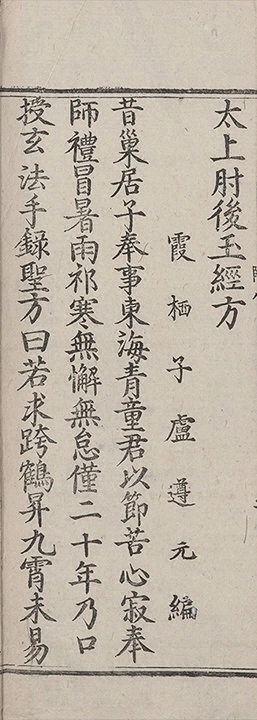 太上肘後玉經方
霞栖子盧遵元編
昔巢居子奉事東海青童君以節苦心寂奉
師禮冒暑雨祁寒無懈無怠僅二十年乃口
授玄法手錄聖方曰若求跨鶴昇九霄未易